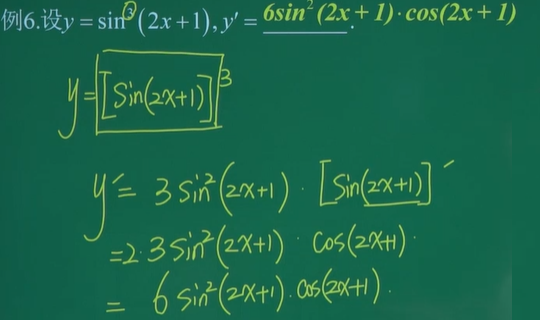 例6.设y = sin³(2x+1), y′ = 6sin²(2x+1)·cos(2x+1).
y=[Sin(2x+1)]³
y′= 3sin²(2x+1)·[Sin(2x+1)]′
=2·3sin²(2x+1)·cos(2x+1)·
= 6sin²(2x+1)·cos(2x+1).